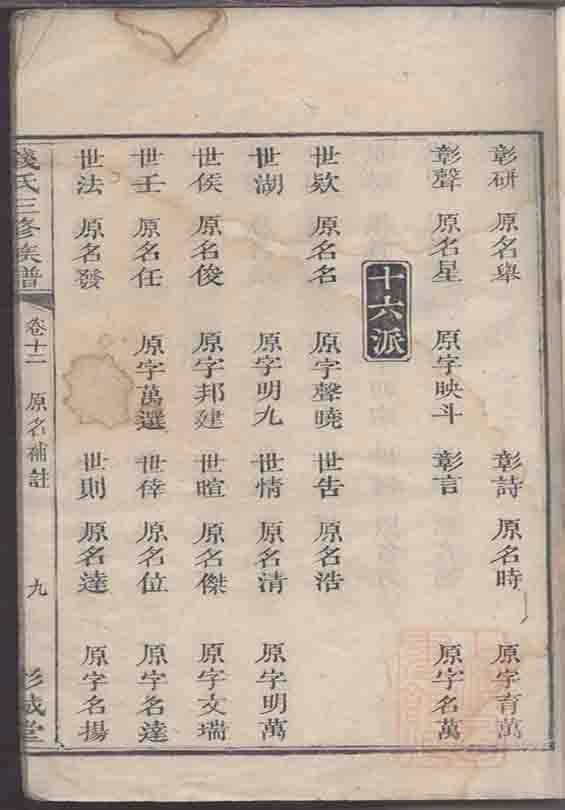 彰研　原名舉　彰詩　原名時　原字育萬
彰聲　原名星　原字映斗　彰言　原字名萬
十六派
世欵　原名名　原字聲曉　世告　原名浩
世湖　原字明九　世情　原名清　原字明萬
世侯　原名俊　原字邦建　世暄　原名傑　原字文瑞
世壬　原名任　原字萬選　世倖　原名位　原字名達
世法　原名發　世則　原名達　原字名揚
錢氏三修族譜　卷十二　原名補註　九　彭城堂